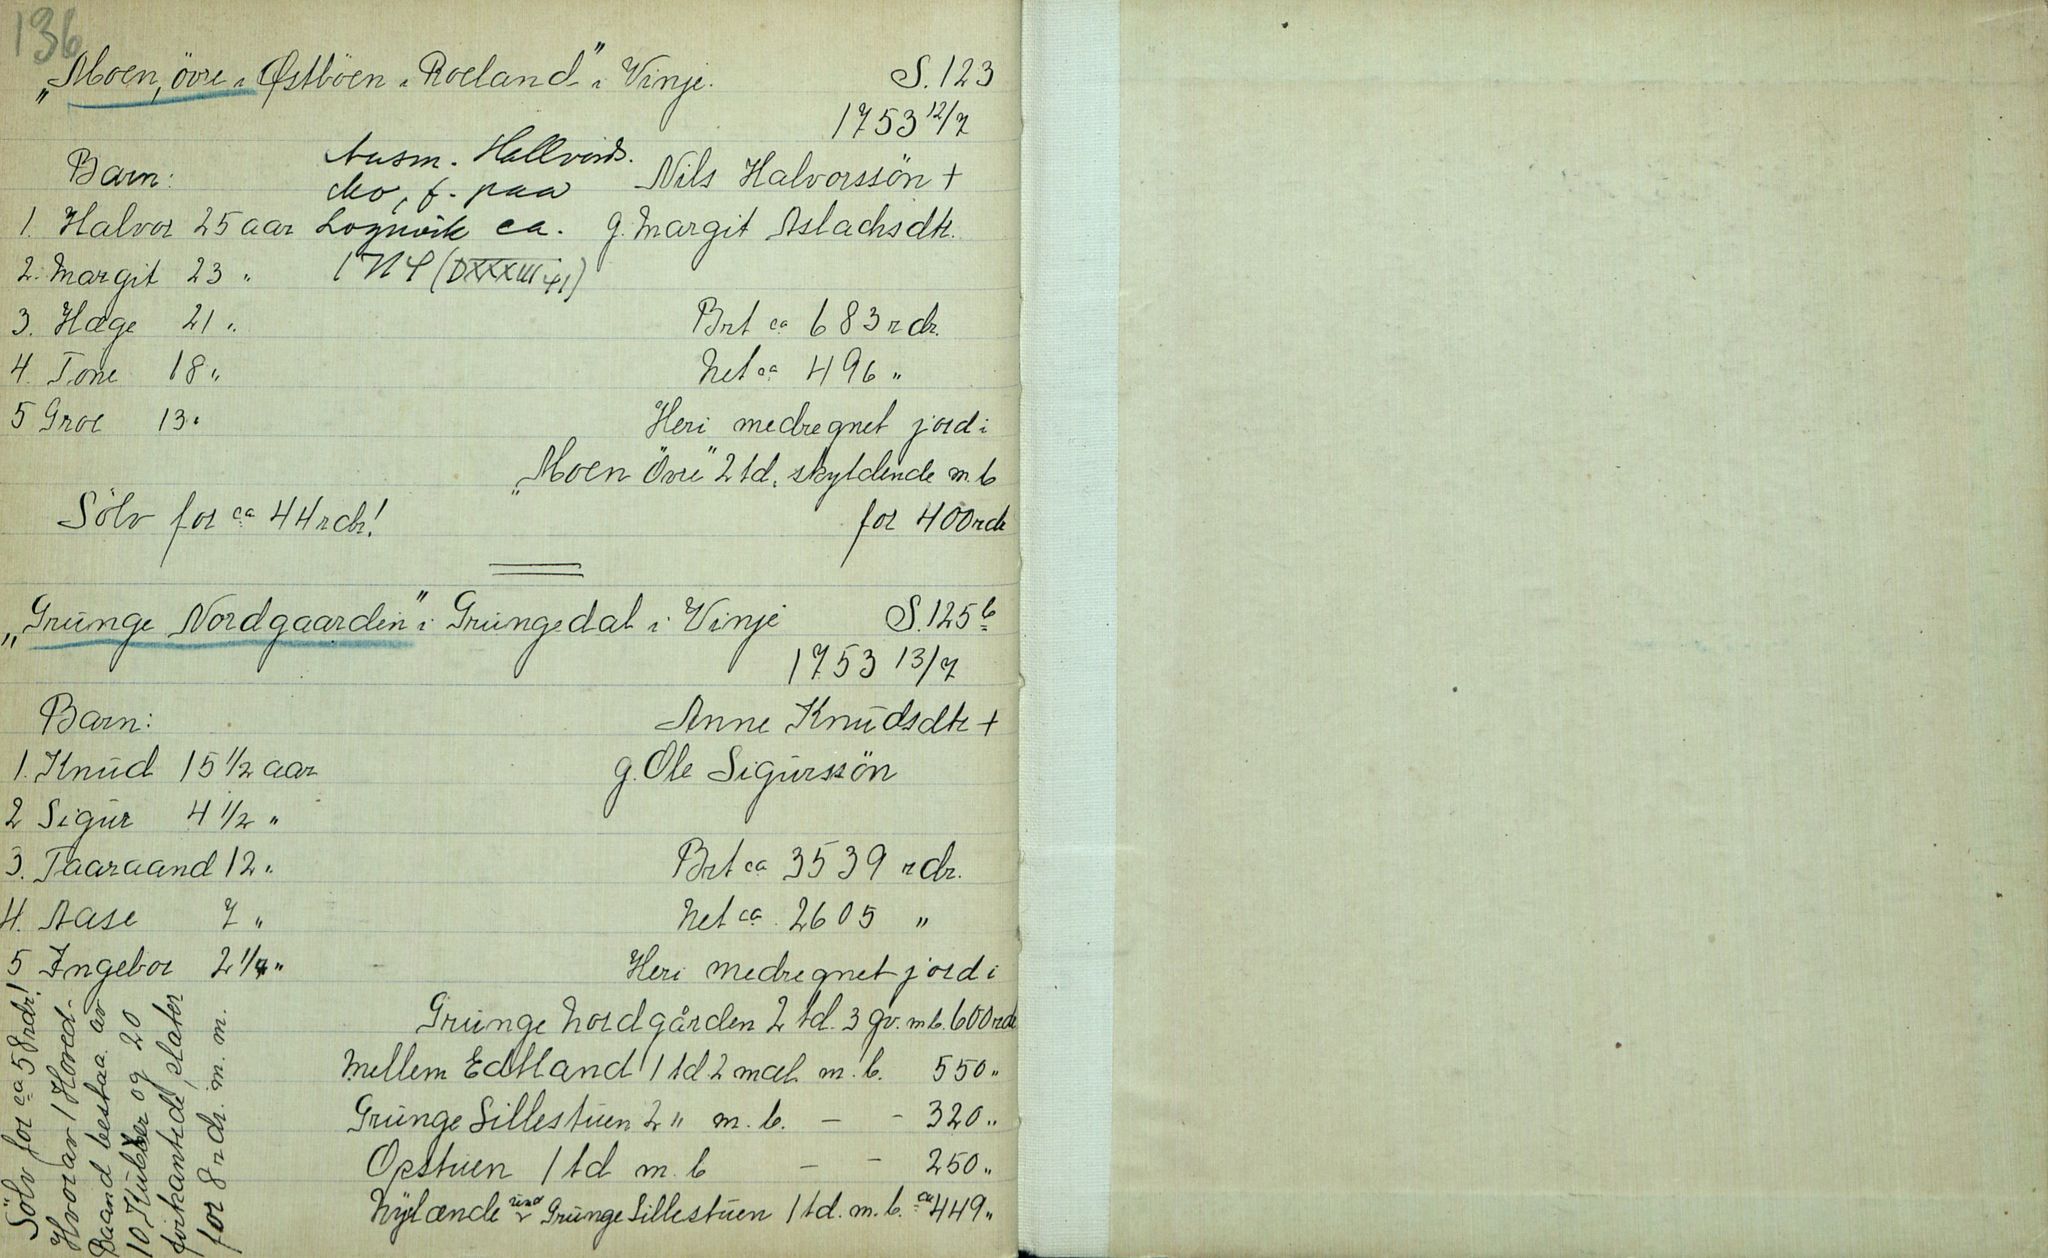 136
„Moen, övre i Østböen i Roeland" i Vinje. S. 123
1753 12/7
Barn: Nils Halvorssön +
Aasm. Hallvords.
Mo, f. paa
Lognvik ca.
(DXXXIII 41)
1. Halvor 25 aar g. Margit Aslachsdtr.
2. Margit 23 "
3. Hæge 21 " Brt ca 683 rdr.
4. Tone 18 " Net ca 496 "
5 Groe 13 " Heri medregnet jord i
„Moen Övre" 2 td. skyldende m. b
Sölv for ca 44 rdr! for 400 rdr
„Grunge Nordgaarden" i Grungedal i Vinje S. 125 b
1753 13/7
Barn: Anne Knudsdtr +
1. Knud 15 1/2 aar g. Ole Sigurssön
2 Sigur 4 1/2 "
3. Taaraand 12 " Brt ca 3539 rdr.
4. Aase 7 " Net ca 2605 "
5 Ingebor 2 1/4 " Heri medregnet jord i
Grunge Nordgården 2 td. 3 gv. m b. 600 rdr
Mellem Edtland 1 td 2 mæl. m. b. 550 "
Grunge Sillestuen 2 " m. b. – - 320 "
Opstuen 1 td m. b – - 250 "
Nylænde und Grunge Sillestuen 1 td. m. b. ca 449 "
Sölv for ca 58 rdr!
Hvorav 1 Hoved-
Baand bestaa. av
10 Kubber og 20
firkantede slater
for 8 rdr. m. m.